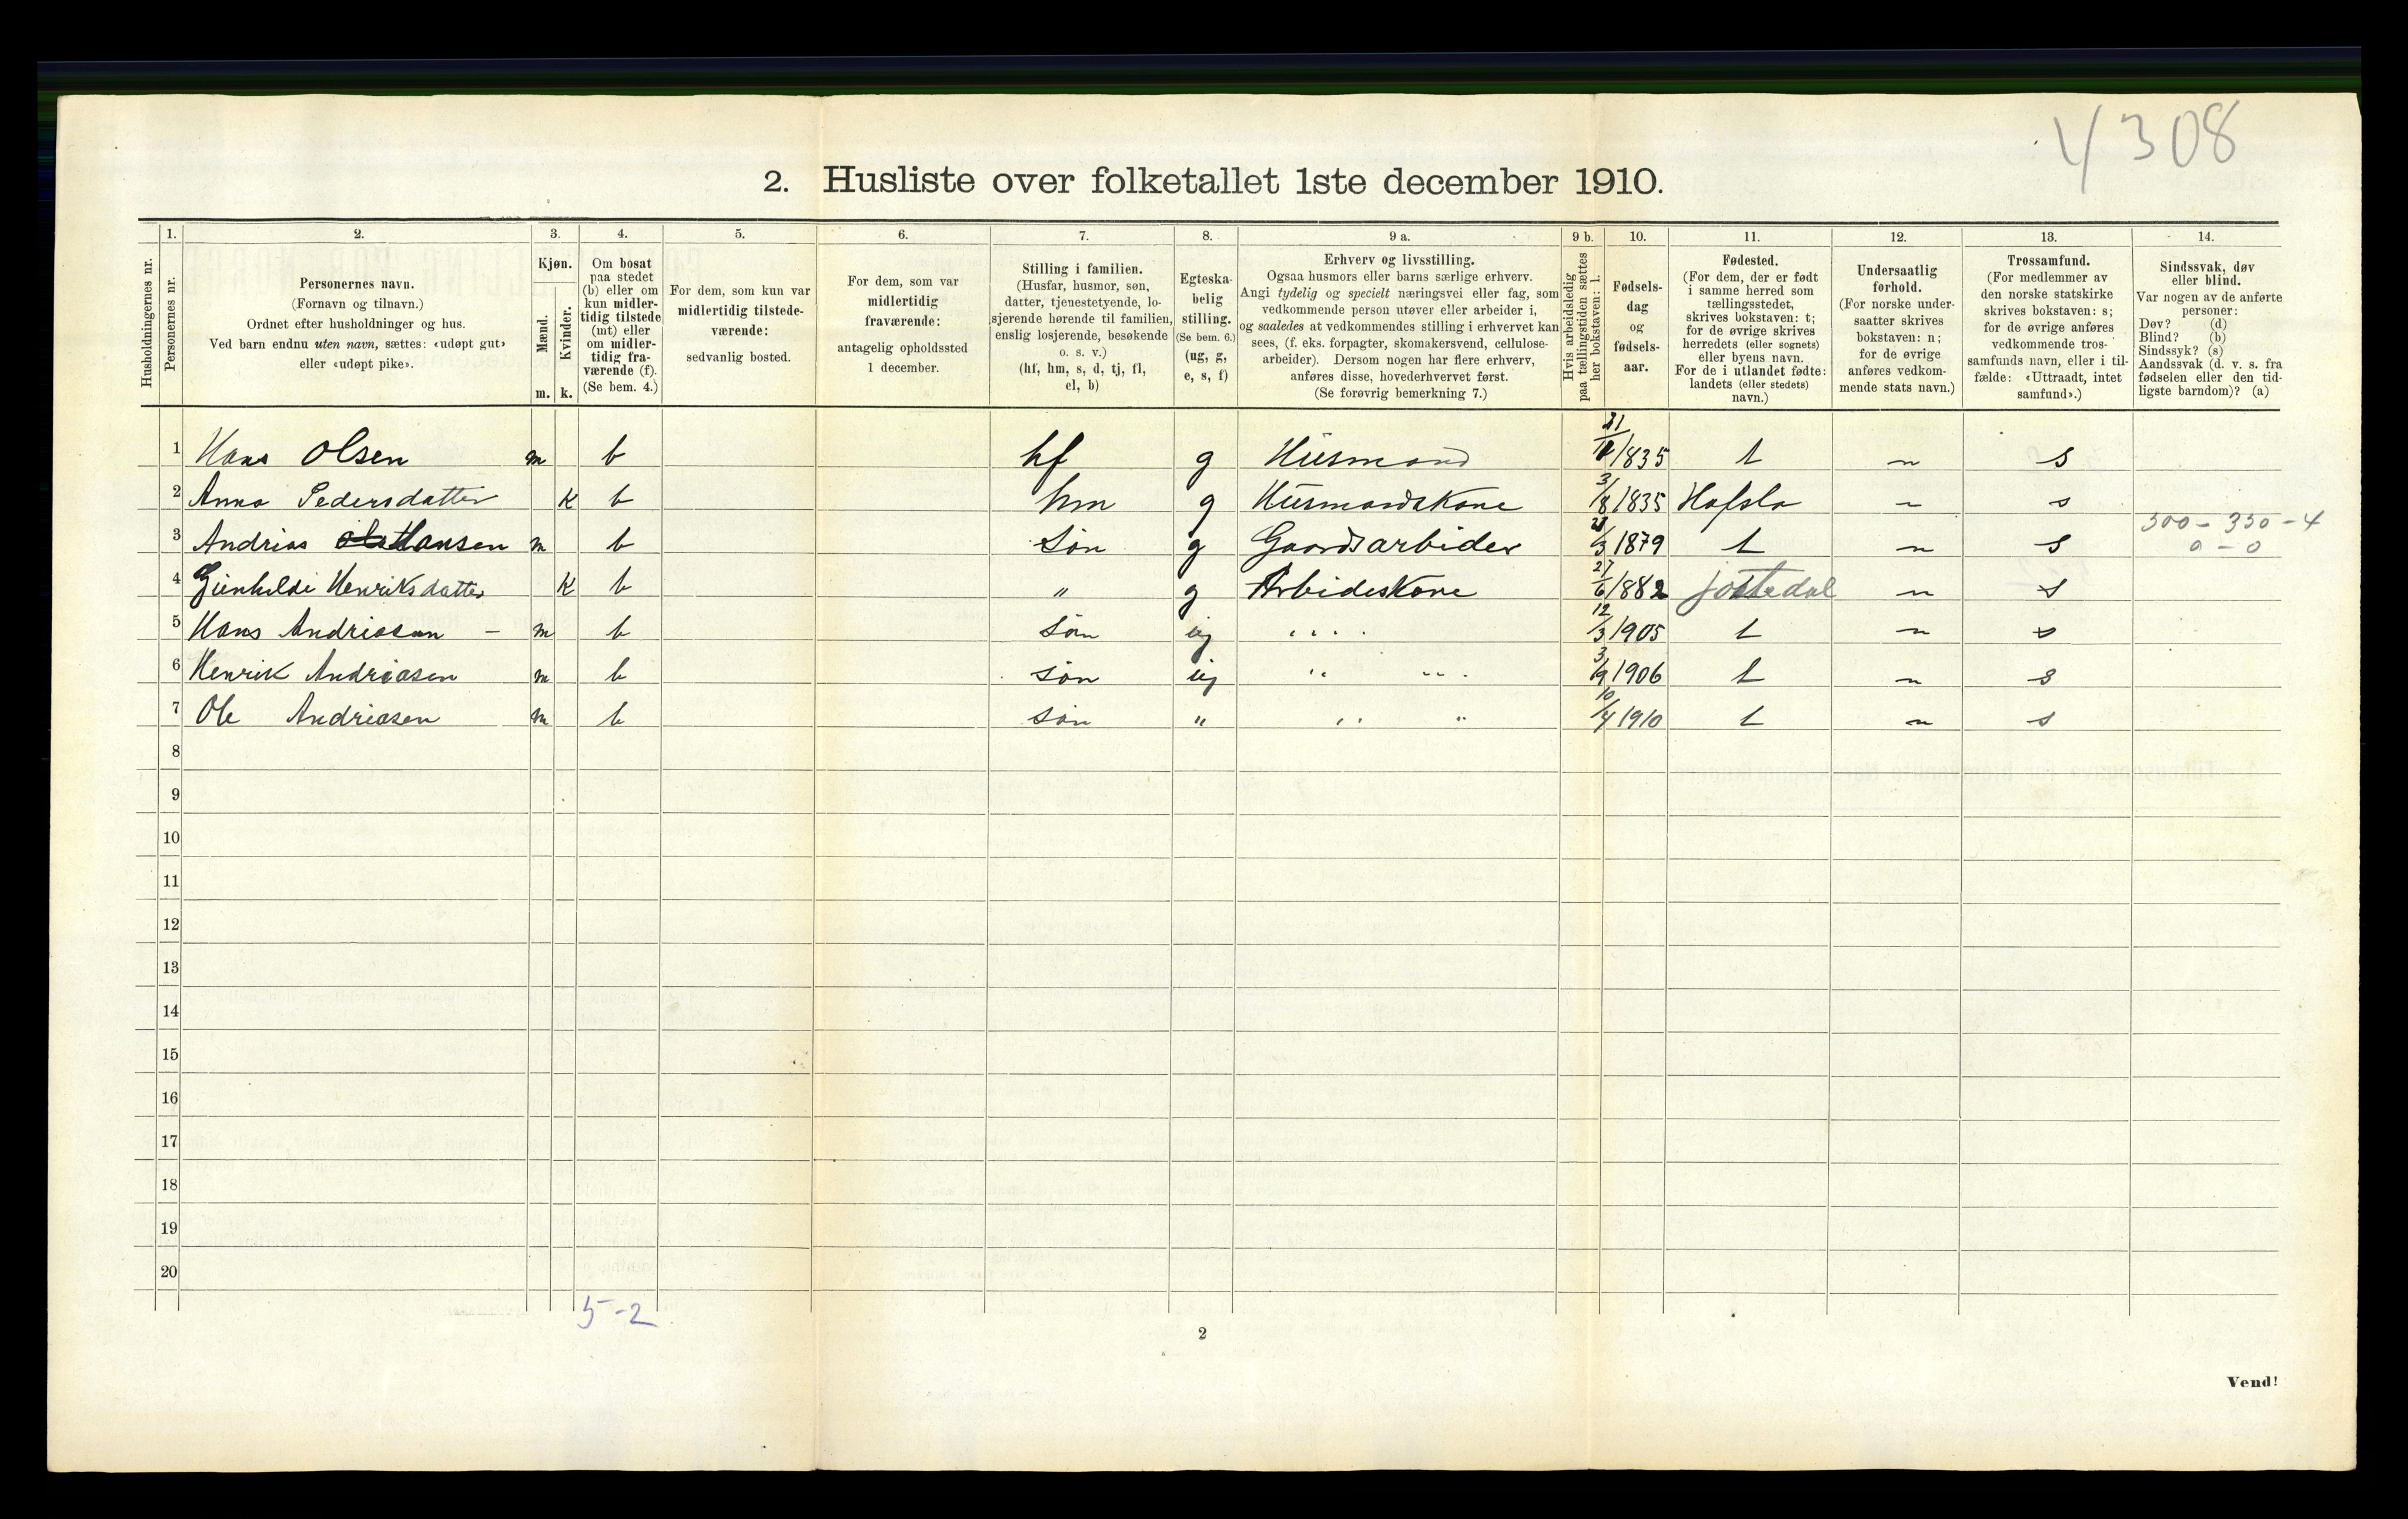 4308
2. Husliste over folketallet 1ste december 1910.
Husholdningernes nr.
1.
Personernes nr.
2.
Personernes navn.
(Fornavn og tilnavn.)
Ordnet efter husholdninger og hus.
Ved barn endnu uten navn, sættes: «udøpt gut»
eller «udøpt pike».
3.
Kjøn.
Mænd.
Kvinder.
m. k.
4.
Om bosat
paa stedet
(b) eller om
kun midler-
tidig tilstede
(mt) eller
om midler-
tidig fra-
værende (f).
(Se bem. 4.)
5.
For dem, som kun var
midlertidig tilstede-
værende:
sedvanlig bosted.
6.
For dem, som var
midlertidig
fraværende:
antagelig opholdssted
1 december.
7.
Stilling i familien.
(Husfar, husmor, søn,
datter, tjenestetyende, lo-
sjerende hørende til familien,
enslig losjerende, besøkende
o. s. v.)
(hf, hm, s, d, tj, fl,
el, b)
8.
Egteska-
belig
stilling.
(Se bem. 6.)
(ug, g,
e, s, f)
9 a.
Erhverv og livsstilling.
Ogsaa husmors eller barns særlige erhverv.
Angi tydelig og specielt næringsvei eller fag, som
vedkommende person utøver eller arbeider i,
og saaledes at vedkommendes stilling i erhvervet kan
sees, (f. eks. forpagter, skomakersvend, cellulose-
arbeider). Dersom nogen har flere erhverv,
anføres disse, hovederhvervet først.
(Se forøvrig bemerkning 7.)
9 b.
Hvis arbeidsledig
paa tællingstiden sættes
her bokstaven: l.
10.
Fødsels-
dag
og
fødsels-
aar.
11.
Fødested.
(For dem, der er født
i samme herred som
tællingsstedet,
skrives bokstaven: t;
for de øvrige skrives
herredets (eller sognets)
eller byens navn.
For de i utlandet fødte:
landets (eller stedets)
navn.)
12.
Undersaatlig
forhold.
(For norske under-
saatter skrives
bokstaven: n;
for de øvrige
anføres vedkom-
mende stats navn.)
13.
Trossamfund.
(For medlemmer av
den norske statskirke
skrives bokstaven: s;
for de øvrige anføres
vedkommende tros-
samfunds navn, eller i til-
fælde: «Uttraadt, intet
samfund».)
14.
Sindssvak, døv
eller blind.
Var nogen av de anførte
personer:
Døv? (d)
Blind? (b)
Sindssyk? (s)
Aandssvak (d. v. s. fra
fødselen eller den tid-
ligste barndom)? (a)
1 Hans Olsen m b hf g Husmand 1835 t n s
2 Anna Pedersdatter k b hm g Husmandskone 3/8 1835 Hafslo n s
3 Andrias Hansen m b Søn g Gaardsarbider 1879 t n s 300 - 350 - 4
0 - 0
4 Gunhilde Henriksdatter k b " g Arbideskone 27/6 1882 jostedal n s
5 Hans Andriasen - m b Søn ug " " 12/3 1905 t n s
6 Henrik Andriasen m b Søn ug " " 3/9 1906 t n s
7 Ole Andriasen m b Søn " " " 10/4 1910 t n s
8
9
10
11
12
13
14
15
16
17
18
19
20
5-2
2
Vend!